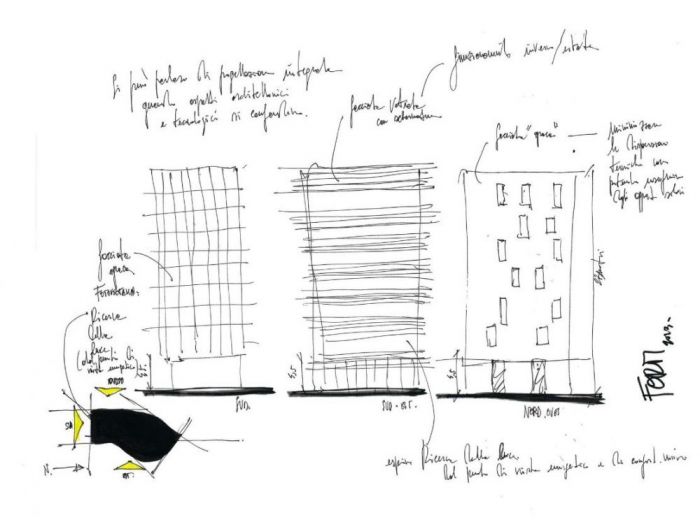 Si può parlare di progettazione integrata
quando aspetti architettonici
e tecnologici si confondono.
funzionamento inverno/estate
facciata vetrata
con schermatura
facciata "opaca"
minimizzare
le dispersioni
termiche con
facciata
opaca
Ricerca
della
luce
dal punto di
vista energetico
SUD.
SUD-EST.
NORD OVEST
3,5
3,5
EST.
N.
Ricerca della luce
dal punto di vista energetico e di comfort
2013.